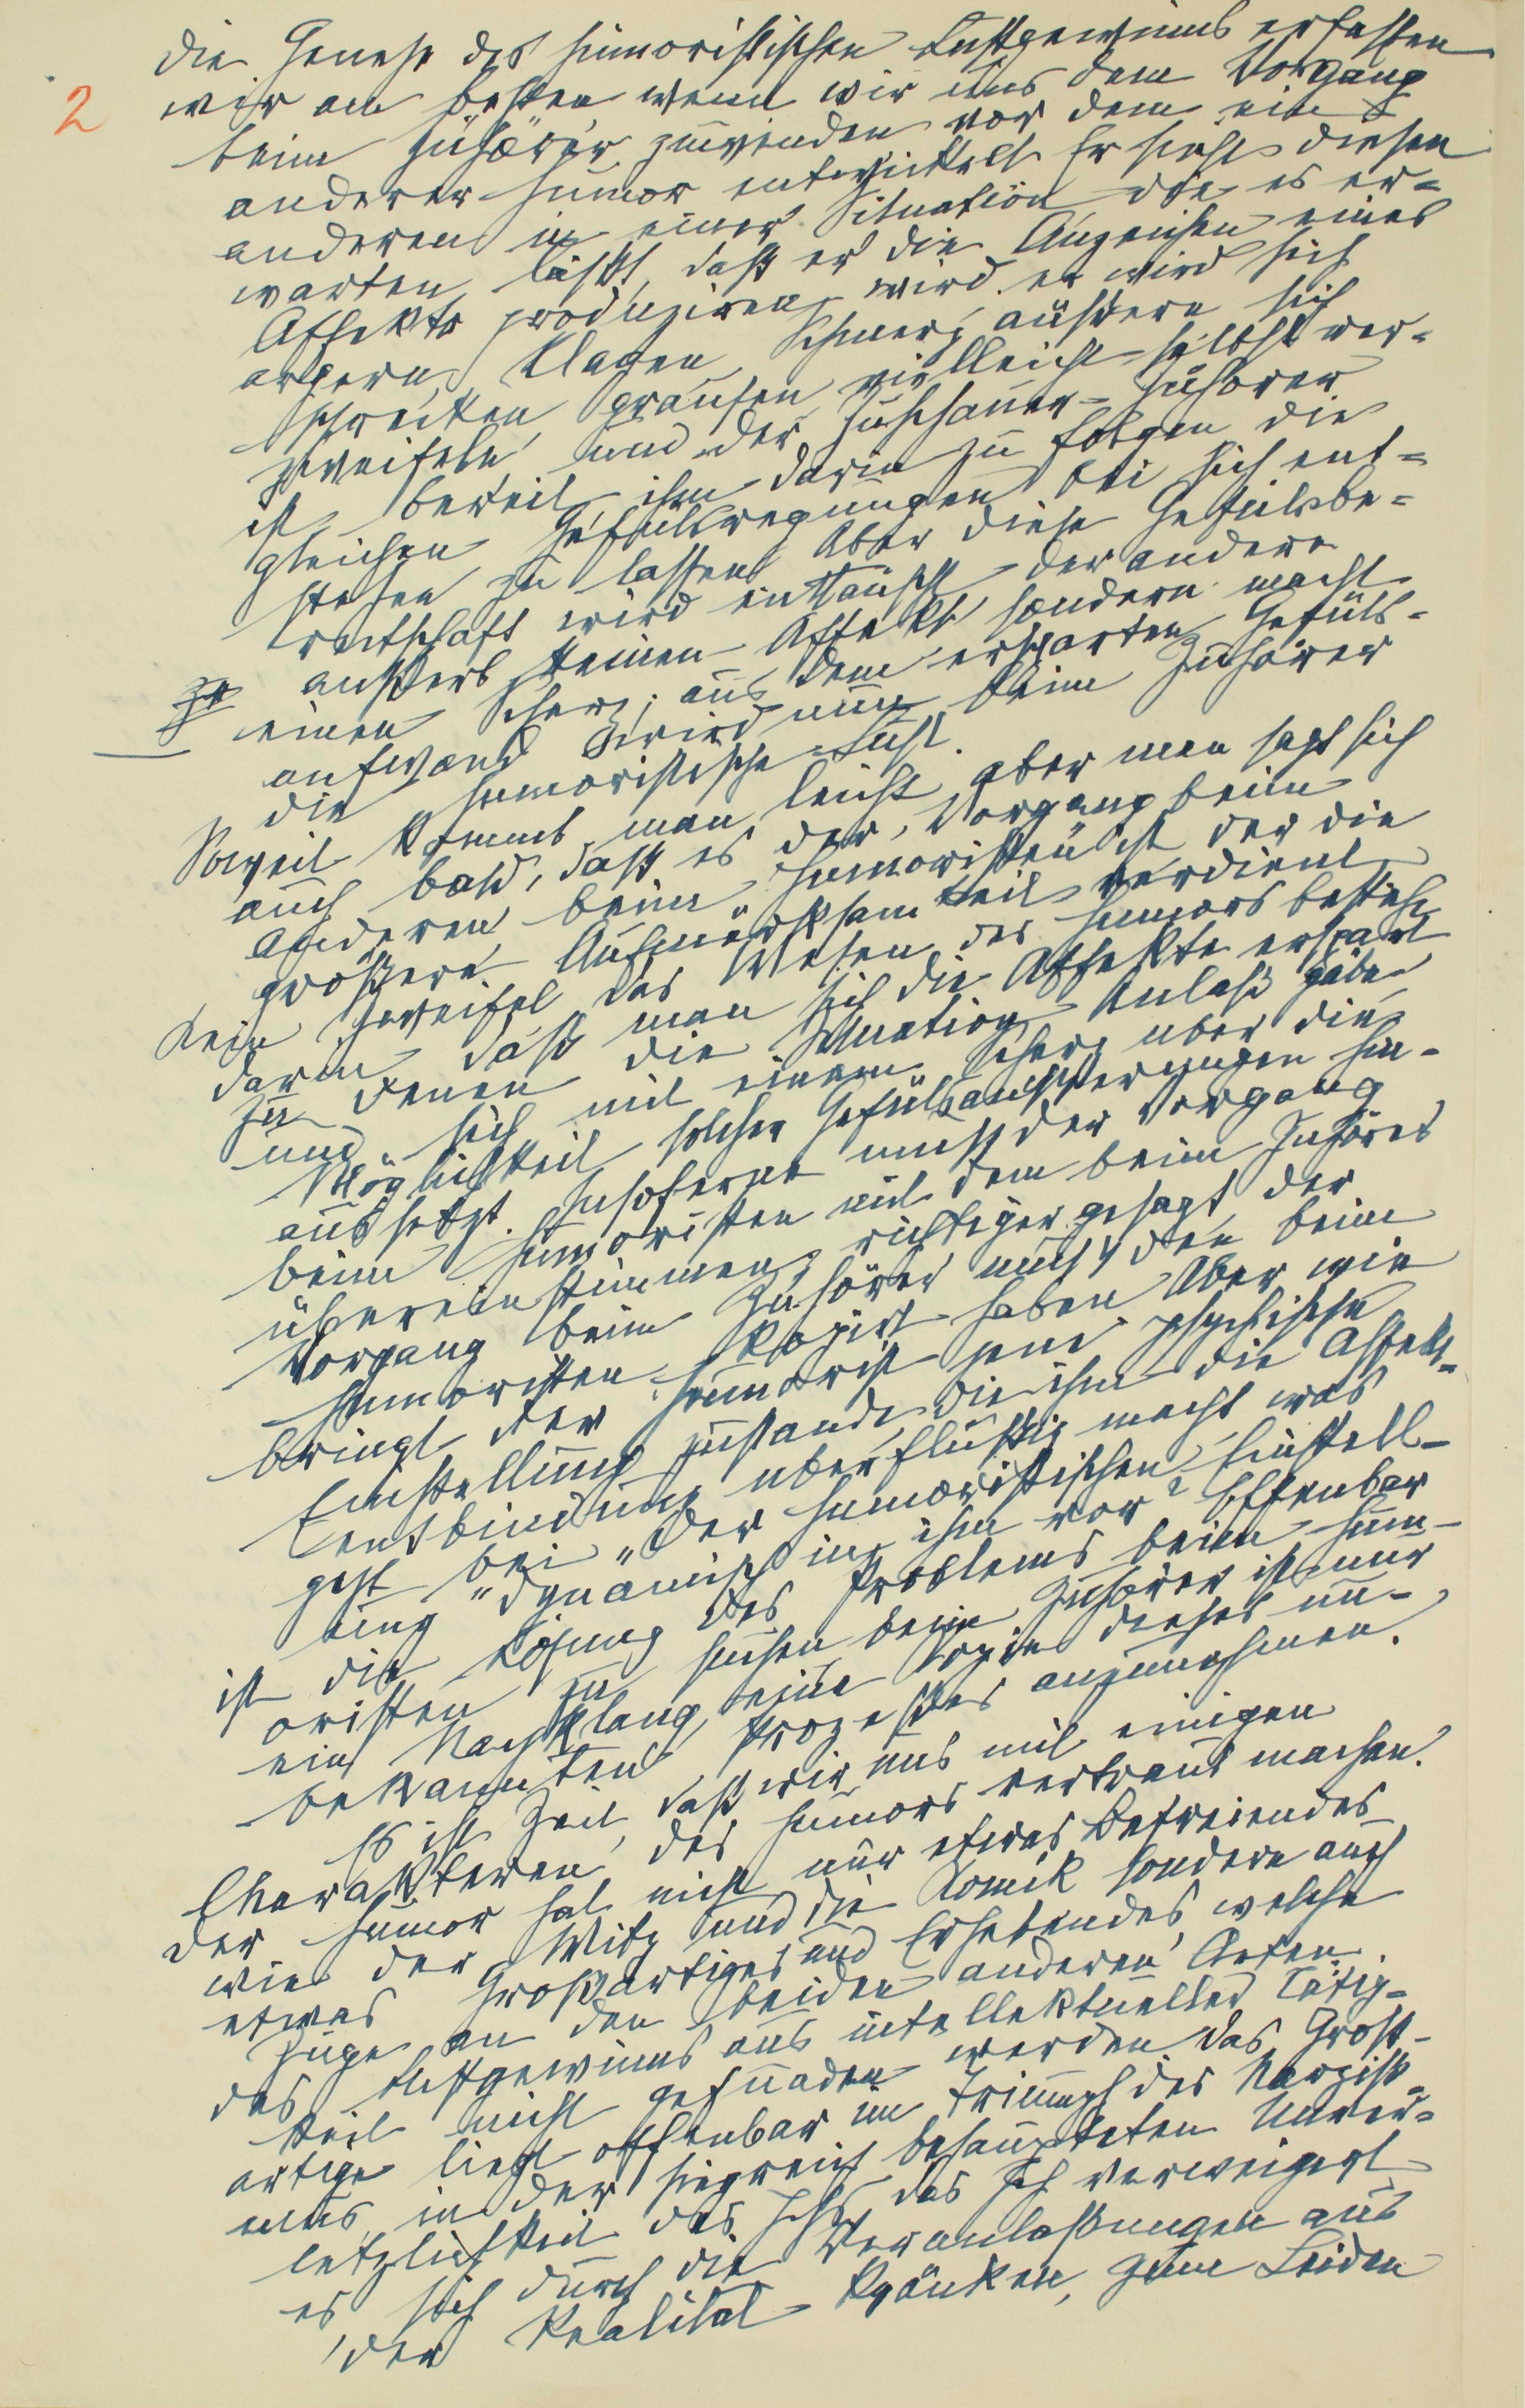 2
Die Genese des humoristischen Lustgewinns erfassen
wir am besten wenn wir uns dem Vorgang
beim Zuhörer zuwenden vor dem ein
anderer Humor entwickelt Er sieht diesen
anderen in einer Situation die es er=
warten läßt, daß er die Anzeichen eines
Affekts produziren wird. er wird sich
ärgern, klagen, Schmerz äußern sich
schrecken grausen vielleicht selbst ver=
zweifeln und der Zuschauer-Zuhörer
ist bereit ihm darin zu folgen die
gleichen Gefülsregungen bei sich ent=
stehen zu lassen Aber diese Gefülsbe=
reitschaft wird enttäuscht der andere
äußert keinen Affekt sondern macht
einen Scherz; aus dem ersparten Gefüls-
aufwand wird nun beim Zuhörer
die humoristische Lust.
Soweit kommt man leicht aber man sagt sich
auch bald, daß es der Vorgang beim
Anderen beim „Humoristen" ist der die
größere Aufmerksamkeit verdient
Kein Zweifel das Wesen des Humors besteht
darin daß man sich die Affekte erspart
zu denen die Situation Anlaß gäbe
und sich mit einem Scherz über die
Möglichkeit solcher Gefülsäußerungen hin-
aussetzt. Insoferne muß der Vorgang
beim Humoristen mit dem beim Zuhörer
übereinstimmen, richtiger gesagt, der
Vorgang beim Zuhörer muß den beim
Humoristen kopirt haben Aber wie
bringt der Humorist jene psychische
Einstellung zustande die ihm die Affekt-
entbindung überflüssig macht was
geht bei „der humoristischen Einstell-
ung" dynamisch in ihm vor? Offenbar
ist die Lösung des Problems beim Hum-
oristen zu suchen beim Zuhörer ist nur
ein Nachklang, eine Kopie dieses un-
bekannten Prozesses anzunehmen.
Es ist Zeit, daß wir uns mit einigen
Charakteren des Humors vertraut machen.
Der Humor hat nicht nur etwas Befreiendes
wie der Witz und die Komik sondern auch
etwas Großartiges und Erhebendes, welche
Züge an den beiden anderen Arten
des Lustgewinns aus intellektueller Tätig-
keit nicht gefunden werden Das Groß-
artige liegt offenbar im Triumph des Narziß-
mus, in der siegreich behaupteten Unver=
letzlichkeit des Ichs Das Ich verweigert
es sich durch die Veranlaßungen aus
der Realität kränken, zum Leiden